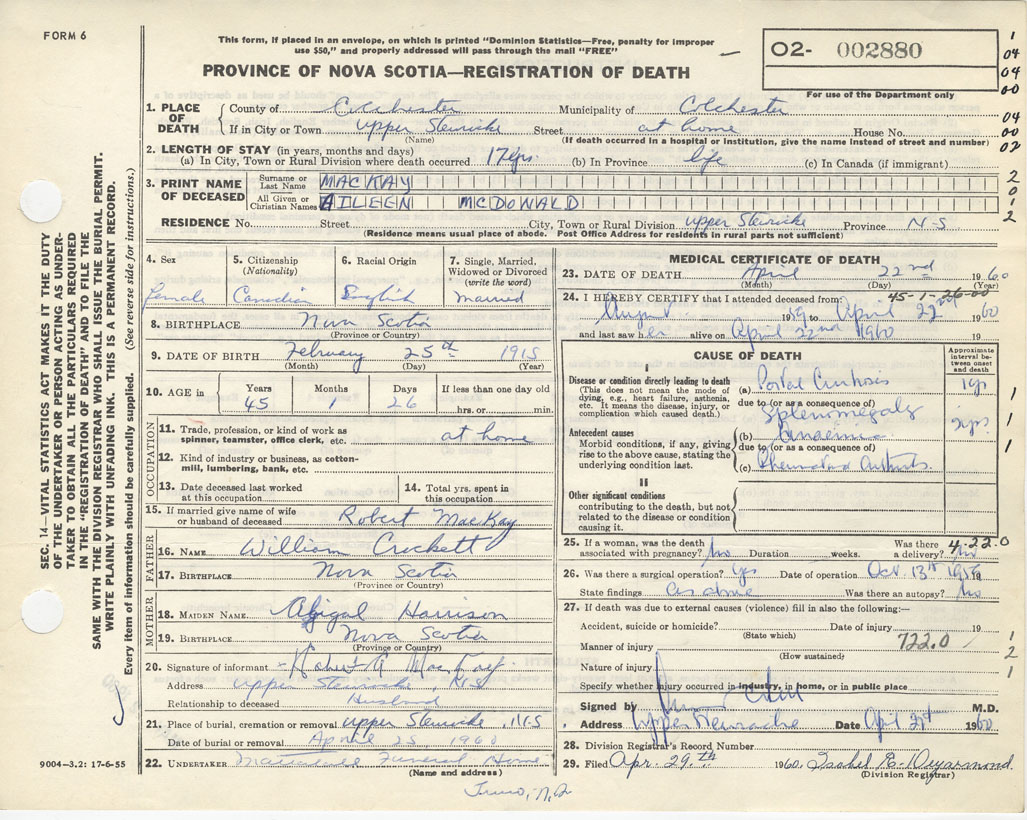 FORM 6
This form, if placed in an envelope, on which is printed "Dominion Statistics—Free, penalty for improper
use $50," and properly addressed will pass through the mail "FREE"
PROVINCE OF NOVA SCOTIA—REGISTRATION OF DEATH
02- 002880
For use of the Department only
1
04
04
00
04
00
02
2
0
1
2
1. PLACE OF DEATH
County of Colchester Municipality of Colchester
If in City or Town Upper Stewiacke Street at home House No.
(Name) (If death occurred in a hospital or institution, give the name instead of street and number)
2. LENGTH OF STAY (in years, months and days)
(a) In City, Town or Rural Division where death occurred 17 yrs. (b) In Province life (c) In Canada (if immigrant)
3. PRINT NAME OF DECEASED
Surname or Last Name MACKAY
All Given or Christian Names AILEEN MCDONALD
RESIDENCE No. Street City, Town or Rural Division Upper Stewiacke Province N-S
(Residence means usual place of abode. Post Office Address for residents in rural parts not sufficient)
4. Sex
female
5. Citizenship
(Nationality)
Canadian
6. Racial Origin
English
7. Single, Married,
Widowed or Divorced
(write the word)
married
8. BIRTHPLACE Nova Scotia
(Province or Country)
9. DATE OF BIRTH February 25th 1915
(Month) (Day) (Year)
10. AGE in
Years Months Days If less than one day old
45 1 26 hrs. or min.
OCCUPATION
11. Trade, profession, or kind of work as
spinner, teamster, office clerk, etc. at home
12. Kind of industry or business, as cotton-
mill, lumbering, bank, etc.
13. Date deceased last worked
at this occupation
14. Total yrs. spent in
this occupation
15. If married give name of wife
or husband of deceased Robert MacKay
FATHER
16. NAME William Crockett
17. BIRTHPLACE Nova Scotia
(Province or Country)
MOTHER
18. MAIDEN NAME Abigal Harrison
19. BIRTHPLACE Nova Scotia
(Province or Country)
20. Signature of informant Robert A MacKay
Address Upper Stewiacke, N.S
Relationship to deceased Husband
21. Place of burial, cremation or removal Upper Stewiacke, N.S
Date of burial or removal April 25, 1960
22. UNDERTAKER Funeral Home
(Name and address)
Truro, N.S
MEDICAL CERTIFICATE OF DEATH
23. DATE OF DEATH April 22nd 1960
(Month) (Day) (Year)
24. I HEREBY CERTIFY that I attended deceased from: 45-1-26-00
August 1959 to April 22nd 1960
and last saw her alive on April 22nd 1960 19
CAUSE OF DEATH
Approximate
interval be-
tween onset
and death
I
Disease or condition directly leading to death
(This does not mean the mode of
dying, e.g., heart failure, asthenia,
etc. It means the disease, injury, or
complication which caused death.)
(a) Portal Cirrhosis
due to (or as a consequence of)
Splenomegaly
Antecedent causes
Morbid conditions, if any, giving
rise to the above cause, stating the
underlying condition last.
(b) Anaemia
due to (or as a consequence of)
(c) Rheumatoid Arthritis.
1
1
1
II
Other significant conditions
contributing to the death, but not
related to the disease or condition
causing it.
25. If a woman, was the death Was there 4-22.0
associated with pregnancy? No Duration weeks. a delivery? No
26. Was there a surgical operation? Yes Date of operation Oct. 13th 19
State findings As above Was there an autopsy? No
27. If death was due to external causes (violence) fill in also the following:—
Accident, suicide or homicide? Date of injury 19
(State which)
Manner of injury 722.0
(How sustained)
Nature of injury
Specify whether injury occurred in industry, in home, or in public place
1
2
1
Signed by M.D.
Address Upper Stewiacke Date April 1960
28. Division Registrar's Record Number
29. Filed Apr. 29th 1960. Isabel
(Division Registrar)
SEC. 14—VITAL STATISTICS ACT MAKES IT THE DUTY
OF THE UNDERTAKER OR PERSON ACTING AS UNDER-
TAKER TO OBTAIN ALL THE PARTICULARS REQUIRED
IN THE "REGISTRATION OF DEATH" AND TO FILE THE
SAME WITH THE DIVISION REGISTRAR WHO SHALL ISSUE THE BURIAL PERMIT.
WRITE PLAINLY WITH UNFADING INK. THIS IS A PERMANENT RECORD.
Every item of information should be carefully supplied. (See reverse side for instructions.)
9004-3.2: 17-6-55